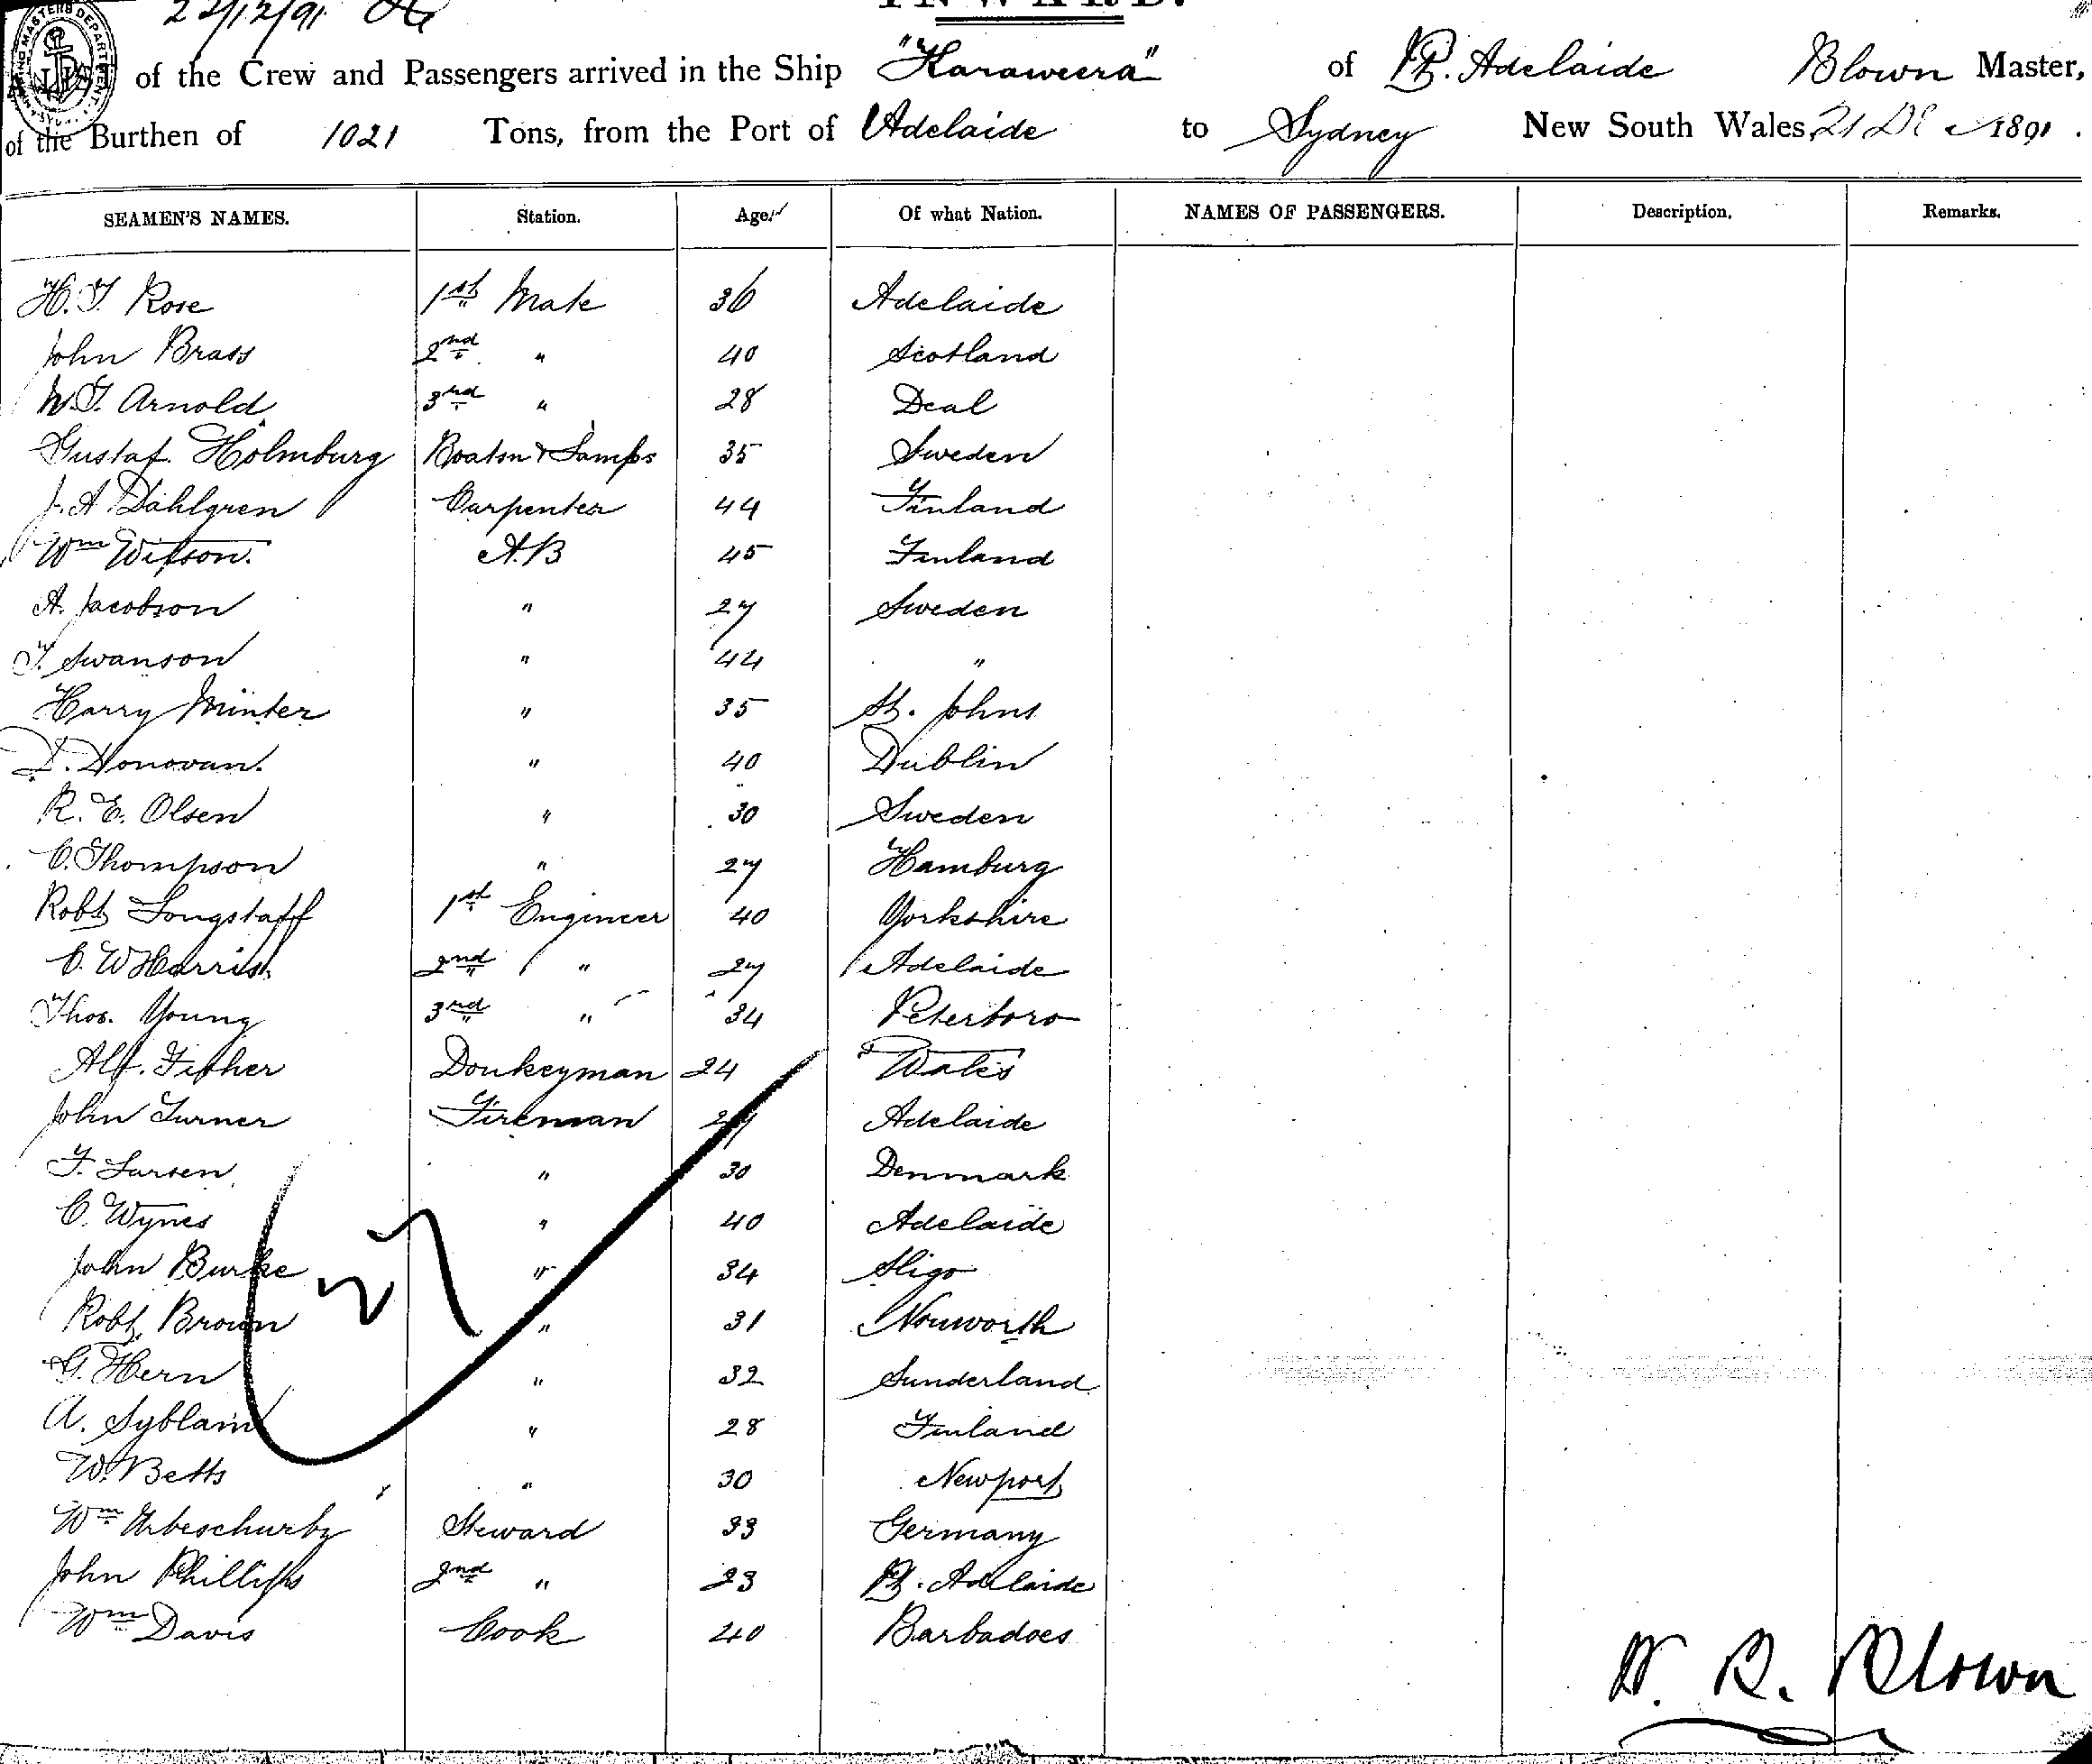 22/12/91
INWARD.
A LIST of the Crew and Passengers arrived in the Ship "Karaweera" of Pt. Adelaide Blown Master,
of the Burthen of 1021 Tons, from the Port of Adelaide to Sydney New South Wales, 21 DE 1891.
SEAMEN'S NAMES. Station. Age. Of what Nation. NAMES OF PASSENGERS. Description. Remarks.
H. T. Rose 1st Mate 36 Adelaide
John Brass 2nd " 40 Scotland
W. T. Arnold 3rd " 28 Deal
Gustaf. Holmburg Boatsn & Lamps 35 Sweden
J. A Dahlgren Carpenter 44 Finland
Wm Wilson. A.B 45 Finland
A. Jacobson " 27 Sweden
T. Swanson " 44 "
Harry Minter " 35 St. Johns
D. Donovan. " 40 Dublin
R. E. Olsen " 30 Sweden
C. Thompson " 27 Hamburg
Robt Longstaff 1st Engineer 40 Yorkshire
C. W Harris 2nd " 27 Adelaide
Thos. Young 3rd " 34 Peterboro
Alf. Fisher Donkeyman 24 Wales
John Turner Fireman Adelaide
F. Larsen " 30 Denmark
C. Wynes " 40 Adelaide
John Burke " 34 Sligo
Robt. Brown " 31
G. Hern " 32 Sunderland
A. Syblam " 28 Finland
W. Betts " 30 Newport
Wm Steward 33 Germany
John Phillips 2nd " 23 Pt. Adelaide
Wm Davis Cook 40 Barbadoes
27
W. R. Blown